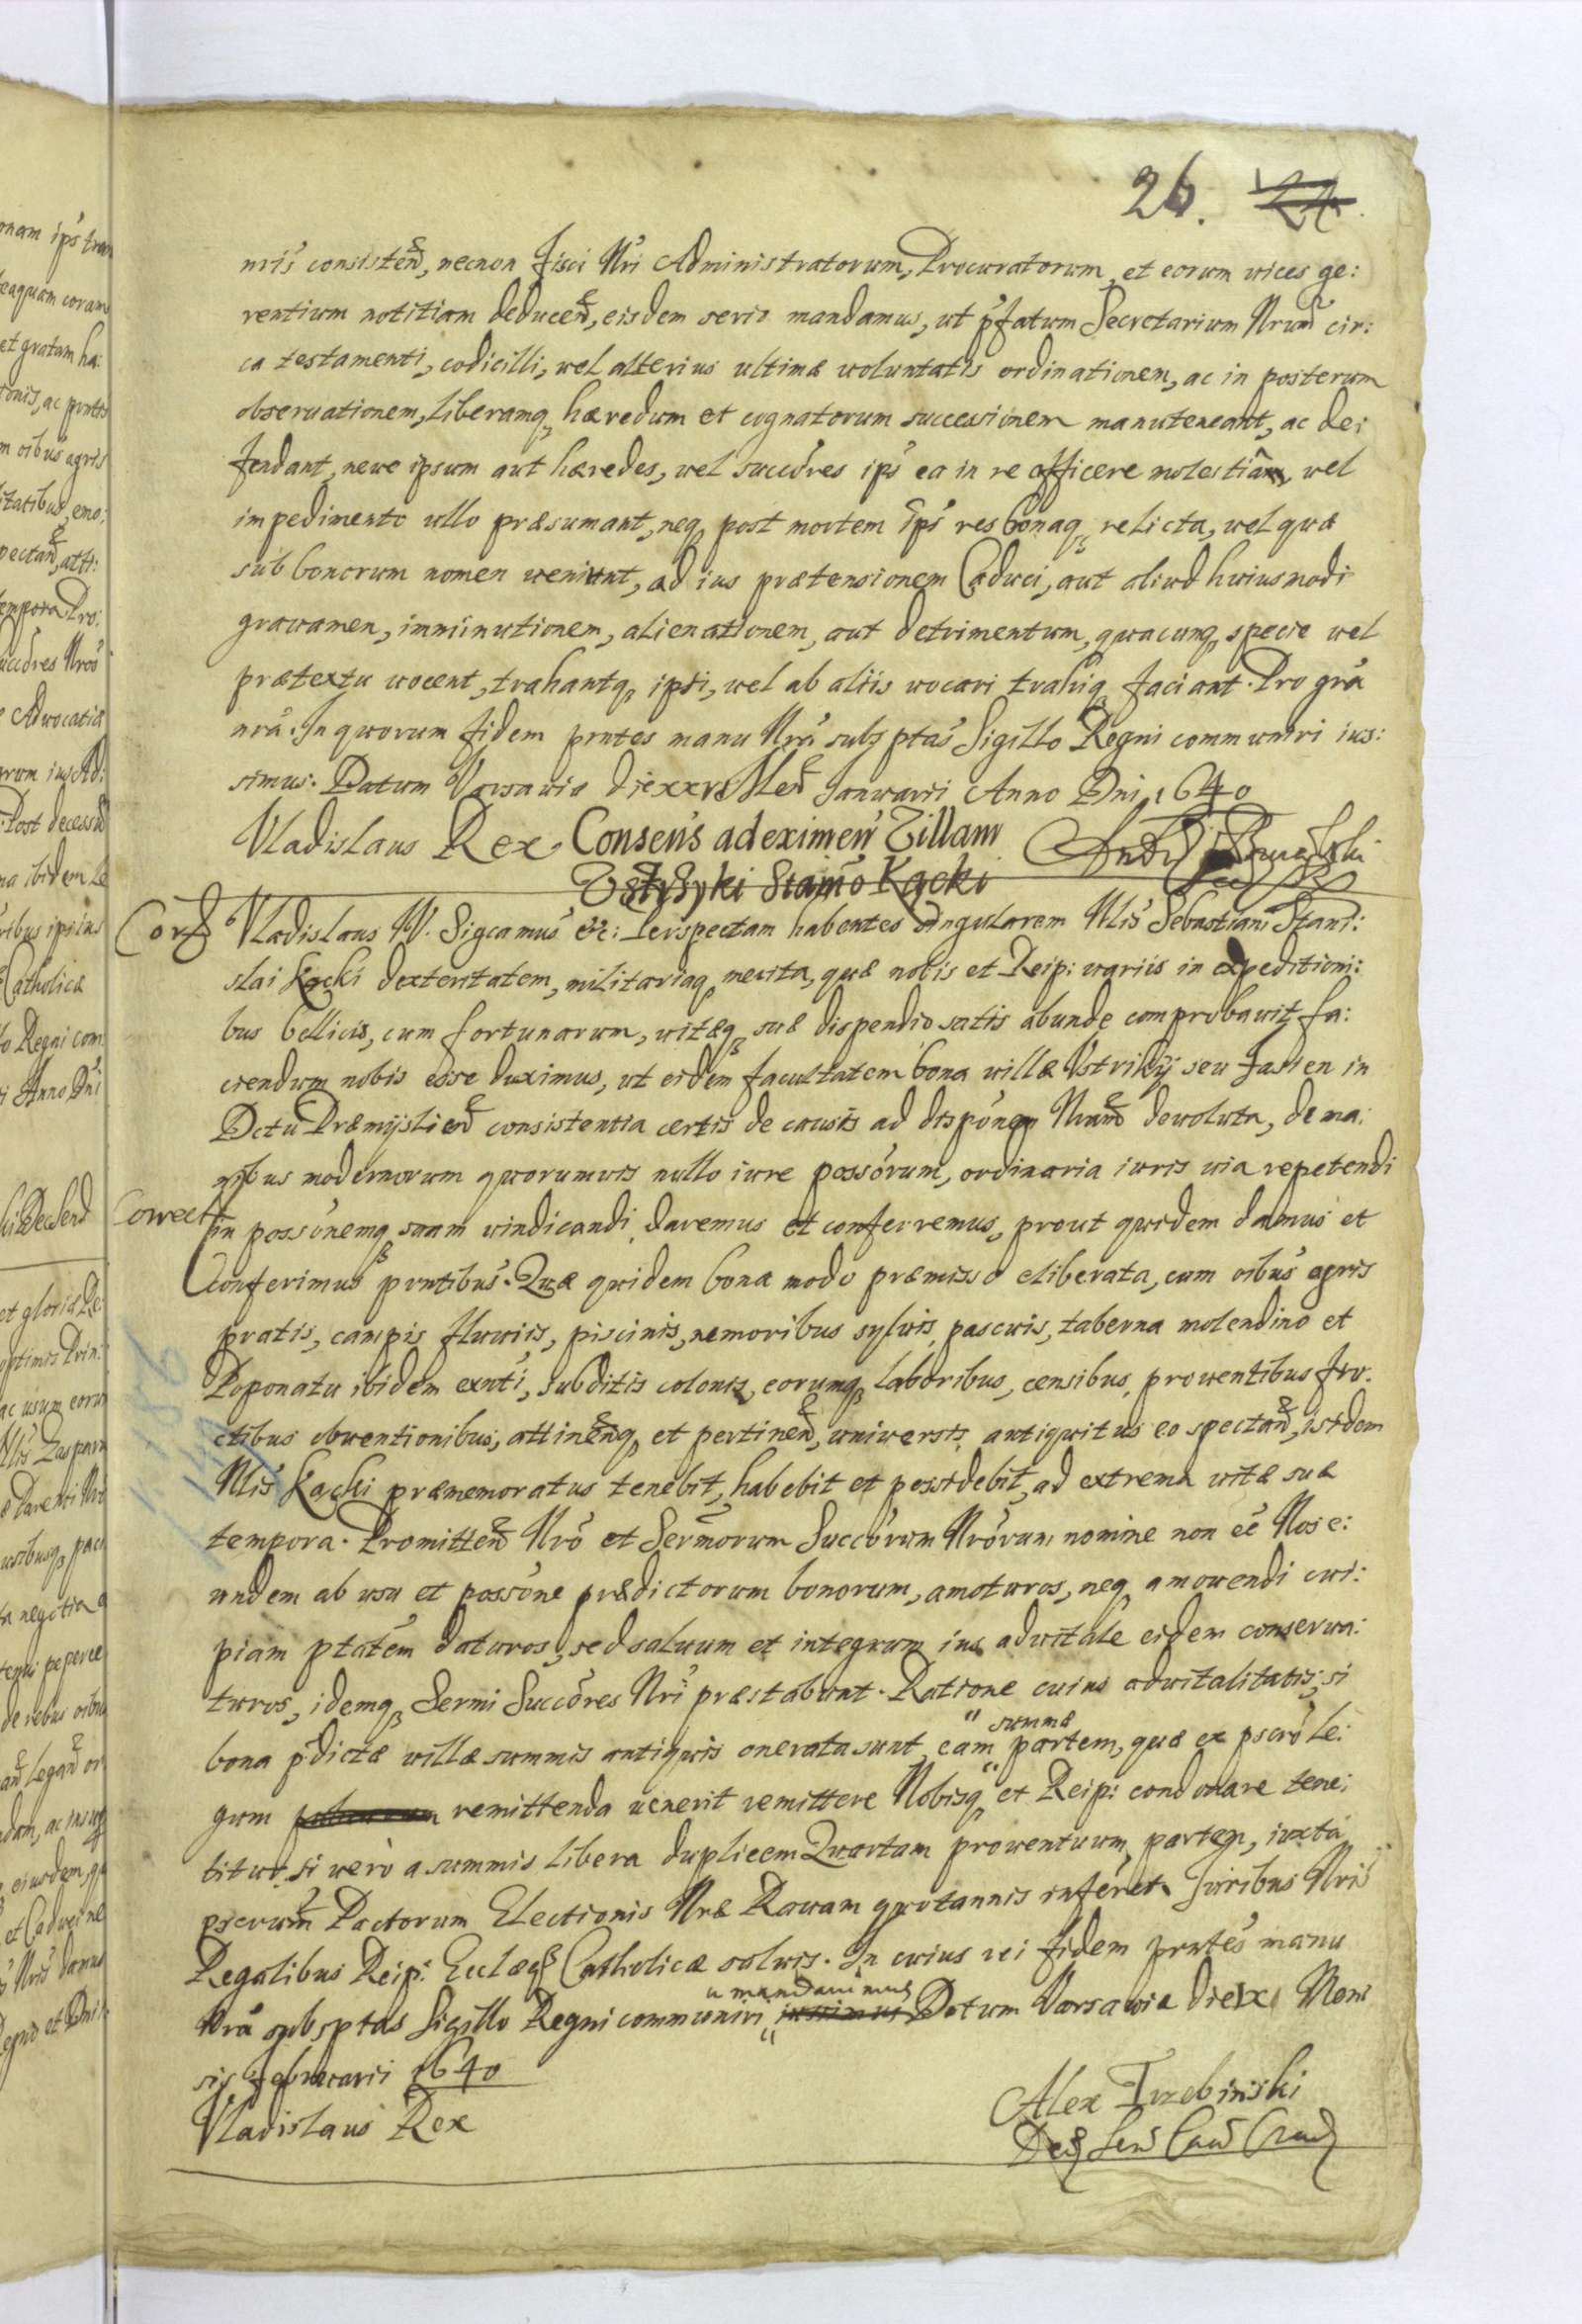 26. 24.
nris consisten, necnon Fisci Nri Administratorum, Procuratorum, et eorum vices ge:
rentium notitiam deducen, eisdem serio mandamus, ut pfatum Secretarium Nrum cir:
ca testamenti, codicilli, vel alterius ultimæ voluntatis ordinationem, ac in posterum
observationem, liberamq hæredum et cognatorum successionem manuteneant, ac de:
fendant, neve ipsum aut hæredes, vel succores ips ea in re afficere molestia, vel
impedimento ullo præsumant, neq post mortem ips res bonaq relicta, vel quæ
sub bonorum nomen veniunt, ad ius prætensionem Caduci, aut aliud huiusmodi
gravamen, imminutionem, alienationem, aut detrimentum, quacunq specie vel
prætextu vocent, trahantq ipsi, vel ab aliis vocari trahiq faciant. Pro gra
nra. In quorum fidem pntes manu Nra subsptas Sigillo Regni communiri ius:
simus. Datum Varsaviæ die xxv Men Januarii Anno Dni 1640
Vladislaus Rex Consens ad eximen Villam
Vstrzyki Stanio Kącki
Vladislaus IV. Sigcamus etc: Perspectam habentes singularem Nlis Sebastiani Stani:
slai Kącki dexteritatem, militariaq merita, quæ nobis et Reip: variis in expeditioni:
bus bellicis, cum fortunarum, vitæq suæ dispendio satis abunde comprobavit, fa:
ciendum nobis esse duximus, ut eidem facultatem bona villæ Vstriky seu Jasien in
Dctu Præmyslien consistentia certis de causis ad disponem Nram devoluta, de ma:
nibus modernorum quorumvis nullo iure possorum, ordinaria iuris via repetendi
Correct in possonemq suam vindicandi daremus et conferremus, prout quidem damus et
conferimus pntibus. Quæ quidem bona modo præmisso eliberata, cum oibus agris
pratis, campis fluviis, piscinis, nemoribus sylvis pascuis, taberna molendino et
Poponatu ibidem exnti, subditis colonis, eorumq laboribus, censibus, proventibus fru:
ctibus obventionibus, attinenq et pertinen, universis antiquitus eo spectan, isdem
Nlis Kącki præmemoratus tenebit, habebit et possidebit, ad extrema vitæ suæ
tempora. Promitten Nro et Sermorum Succorum Nrorum nomine non ee Nos e:
undem ab usu et possone prædictorum bonorum, amoturos, neq amovendi cui:
piam ptatem daturos, sed salvum et integrum ius advitale eidem conserva:
turos, idemq Sermi Succores Nri præstabunt. Ratione cuius advitalitatis, si
bona pdictæ villæ summis antiquis onerata sunt, eam summæ partem, quæ ex pscro le:
gum remittenda venerit remittere Nobisq et Reip: condonare tene:
bitur, si vero a summis libera duplicem Quartam proventuum partem, iuxta
pscrum Pactorum Electionis Nræ Ravam quotannis inferet. Juribus Nris
Regalibus Reip: Ecclæq Catholicæ salvis. In cuius rei fidem pntes manu
Nra subsptas Sigillo Regni communiri mandavimus iussimus Datum Varsaviæ die Men
sis Februarii 1640
Vladislaus Rex
Alex Trzebinski